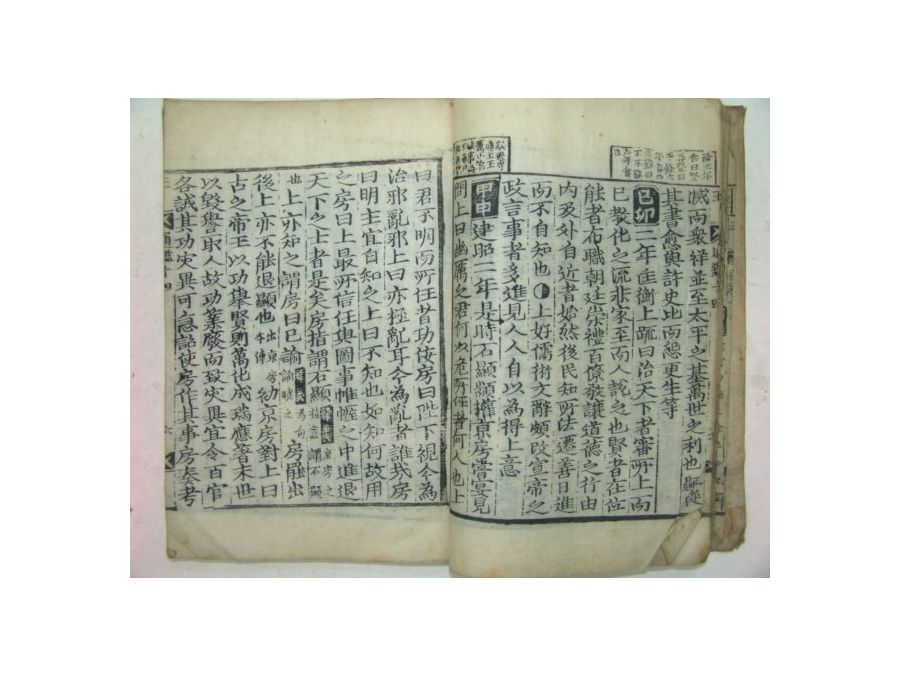 滅而衆祥並至太平之基萬世之利也顯從
其書愈與許史比而怨更生等
己卯二年匡衡上疏曰治天下者審所上而
已敎化之流非家至而人說之也賢者在位
能者布職朝廷崇禮百僚敬讓道德之行由
內及外自近者始然後民知所法遷善日進
而不自知也上好儒術文辭頗改宣帝之
政言事者多進見人人自以為得上意
甲申建昭二年是時石顯顓權京房嘗宴見
問上曰幽厲之君何以危所任者何人也上
曰君不明而所任者巧佞房曰陛下視今為
治邪亂邪上曰亦極亂耳今為亂者誰哉房
曰明主宜自知之上曰不知也如知何故用
之房曰上最所信任與圖事帷幄之中進退
天下之士者是矣房指謂石顯
上亦知之謂房曰已諭
房罷出
後上亦不能退顯也出京房本傳初京房對上曰
古之帝王以功擧賢則萬化成瑞應著末世
以毁譽取人故功業廢而致灾異宜令百官
各試其功灾異可息詔使房作其事房奏考
通鑑十四